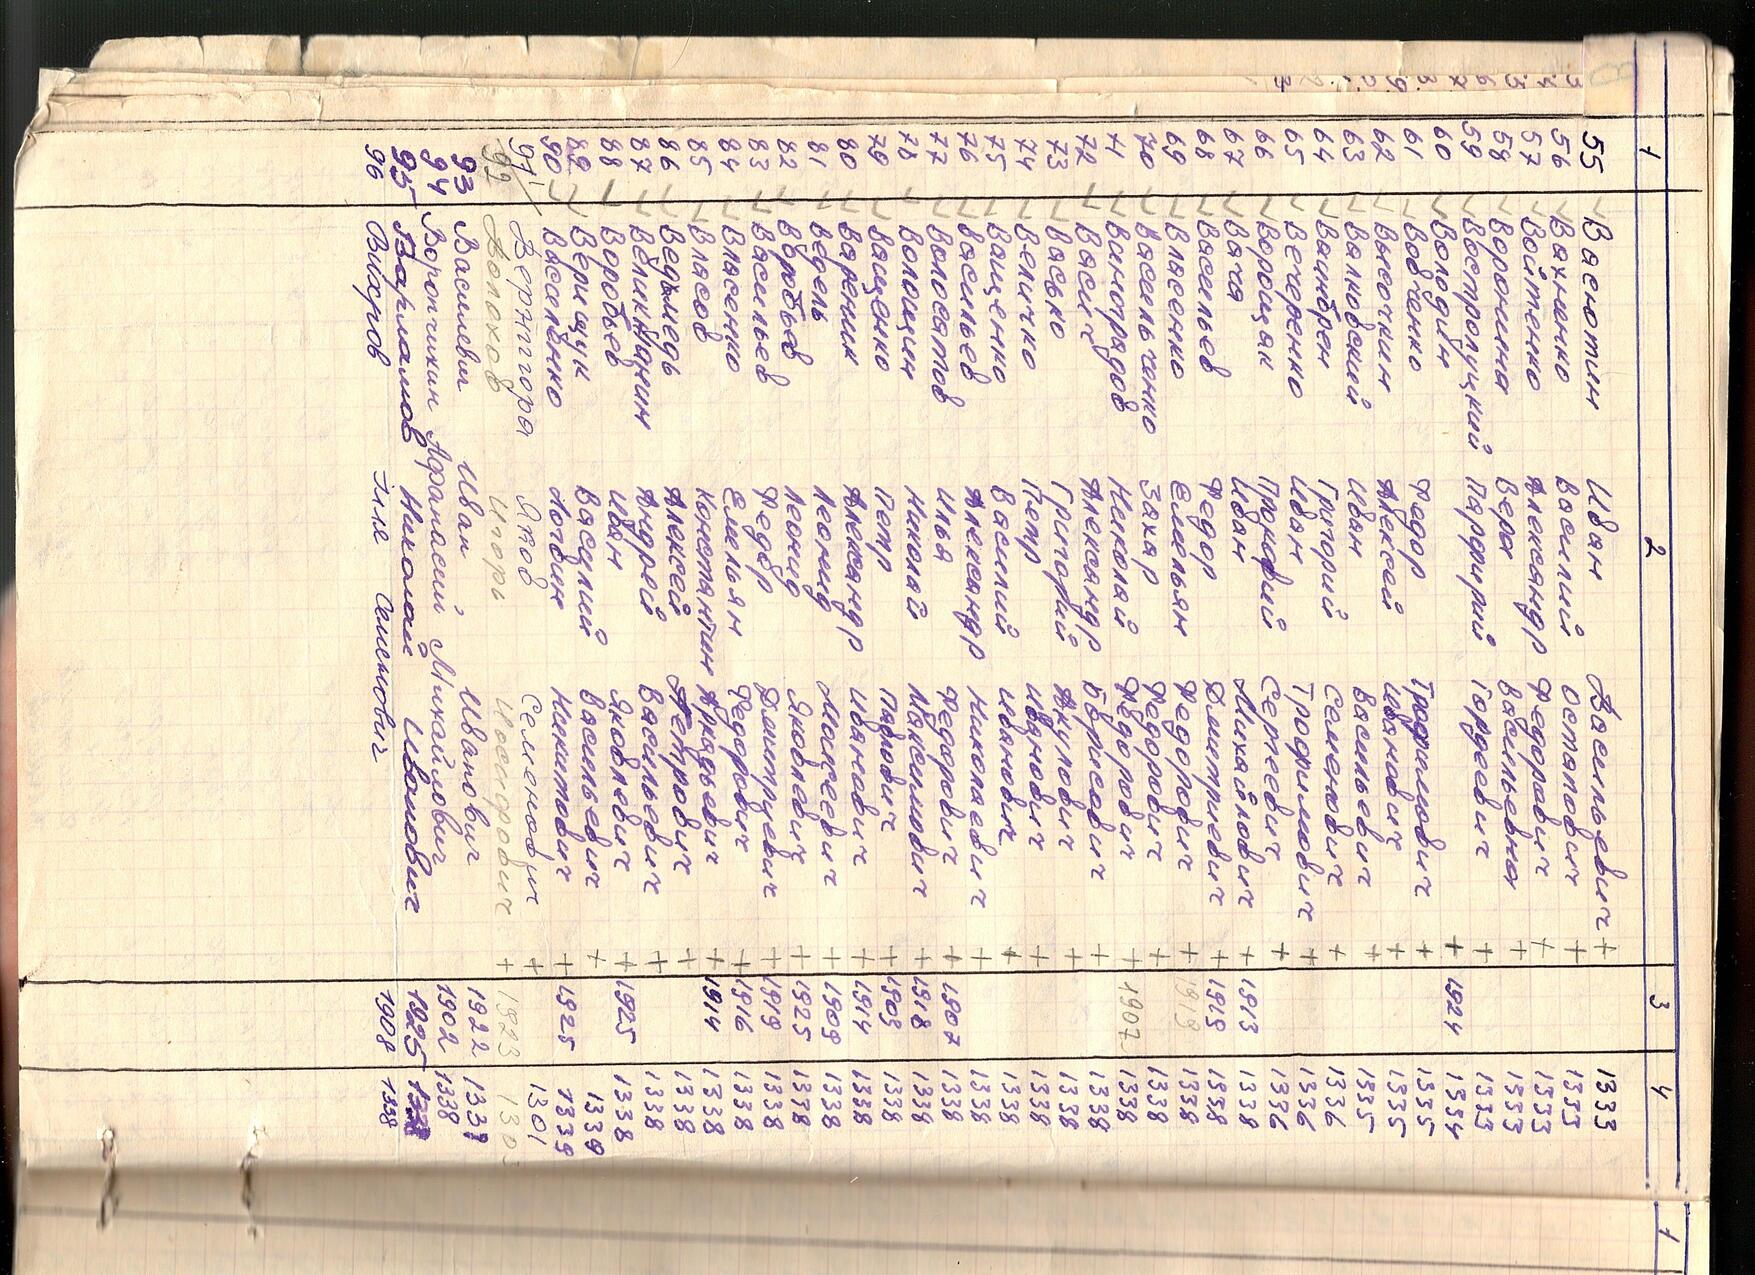 1 2 3 4
55 Васютин Иван Васильевич + 1333
56 Вахненко Василий Остапович + 1333
57 Войтенко Александр Федорович + 1333
58 Воронина Вера Васильевна + 1333
59 Воспропуцкий Парфирий Гордеевич + 1333
60 Володин + 1924 1334
61 Вовченко Федор Трофимович + 1335
62 Высочкин Алексей Иванович + 1335
63 Валковский Иван Васильевич + 1335
64 Вацнбрен Григорий Семенович + 1336
65 Вечеренко Иван Трофимович + 1336
66 Вороцяк Прокофий Сергеевич + 1336
67 Вачя Иван Михайлович + 1913 1338
68 Васильев Федор Дмитриевич + 1919 1338
69 Власенко Емельян Федорович + 1919 1338
70 Васильченко Захар Федорович + 1338
71 Виноградов Николай Федорович + 1907 1338
72 Васич Александр Борисович + 1338
73 Васько Григорий Акулович + 1338
74 Величко Петр Иванович + 1338
75 Ващенко Василий Иванович + 1338
76 Васильев Александр Николаевич + 1338
77 Волосятов Илья Федорович + 1907 1338
78 Волощин Николай Максимович + 1918 1338
79 Ващенко Петр Павлович + 1903 1338
80 Вареник Александр Иванович + 1914 1338
81 Ведель Леонид Моисеевич + 1909 1338
82 Воробьев Леонид Яковлевич + 1925 1338
83 Васильев Федор Дмитриевич + 1919 1338
84 Власенко Емельян Федорович + 1916 1338
85 Власов Константин Аркадьевич + 1914 1338
86 Ведмедь Алексей Петрович + 1338
87 Великжанин Андрей Васильевич + 1338
88 Воробьев Иван Яковлевич + 1925 1338
89 Верищук Василий Васильевич + 1339
90 Василенко Логвин Никитович + 1925 1339
91 Вернигора Яков Семенович + 1301
92 Волохов Игорь Изосимрович + 1923
93 Василевич Иван Иванович 1922 1339
94 Ворончихин Афанасий Михайлович 1902 1338
95 Варламов Николай Иванович 1925
96 Вихров Эиле Семенович 1908 1338
1